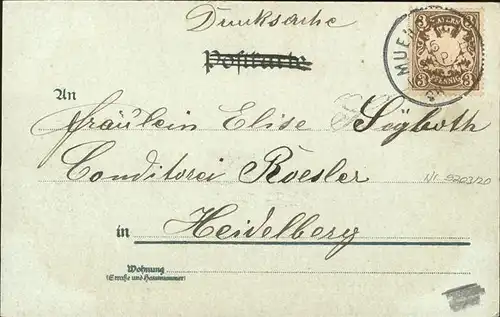 Drucksache
Postkarte
BAYERN
3 3
PFENNIG
MUE
An
Fräulein Elise Seyboth
Conditorei Roesler
Nr 9203/20
in Heidelberg
Wohnung
(Straße und Hausnummer)